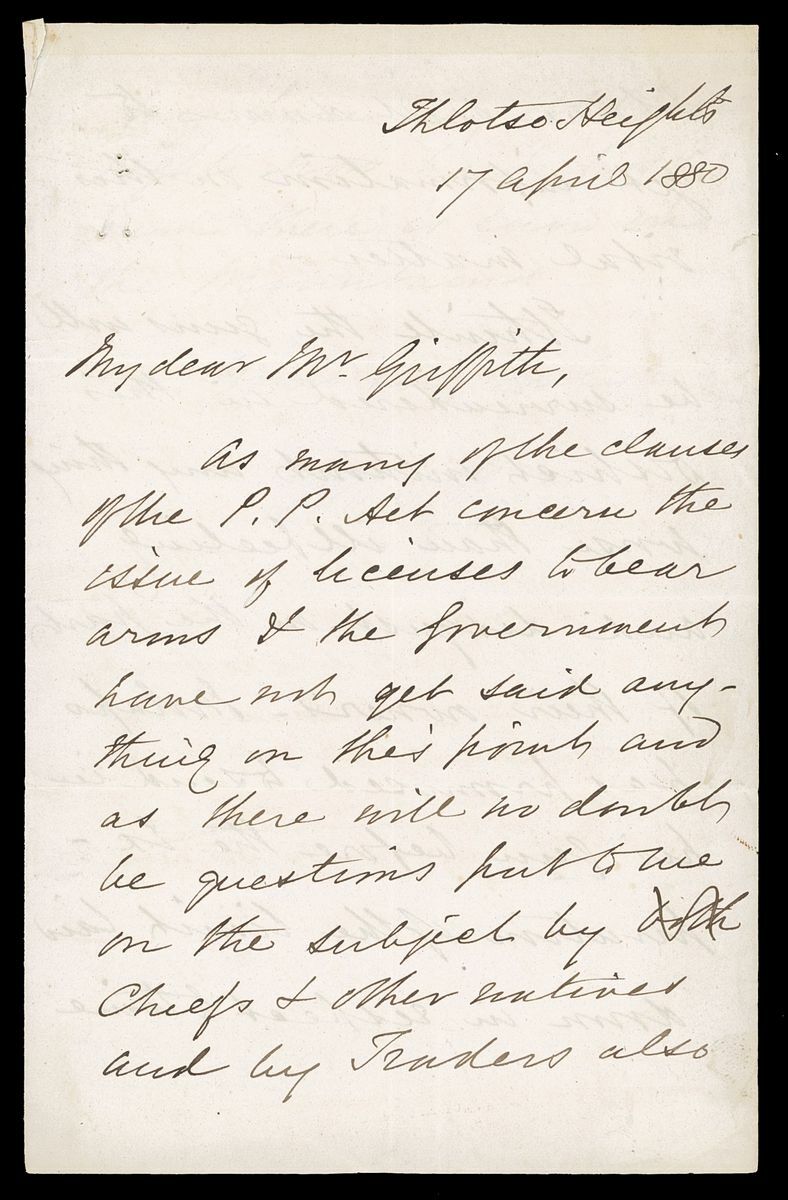 Thlotse Heights
17 April 1880
My dear Mr. Griffith,
As many of the clauses
of the P. P. Act concern the
issue of licenses to bear
arms & the Government
have not yet said any-
thing on this point and
as there will no doubt
be questions put to me
on the subject by both
Chiefs & other natives
and by Traders also